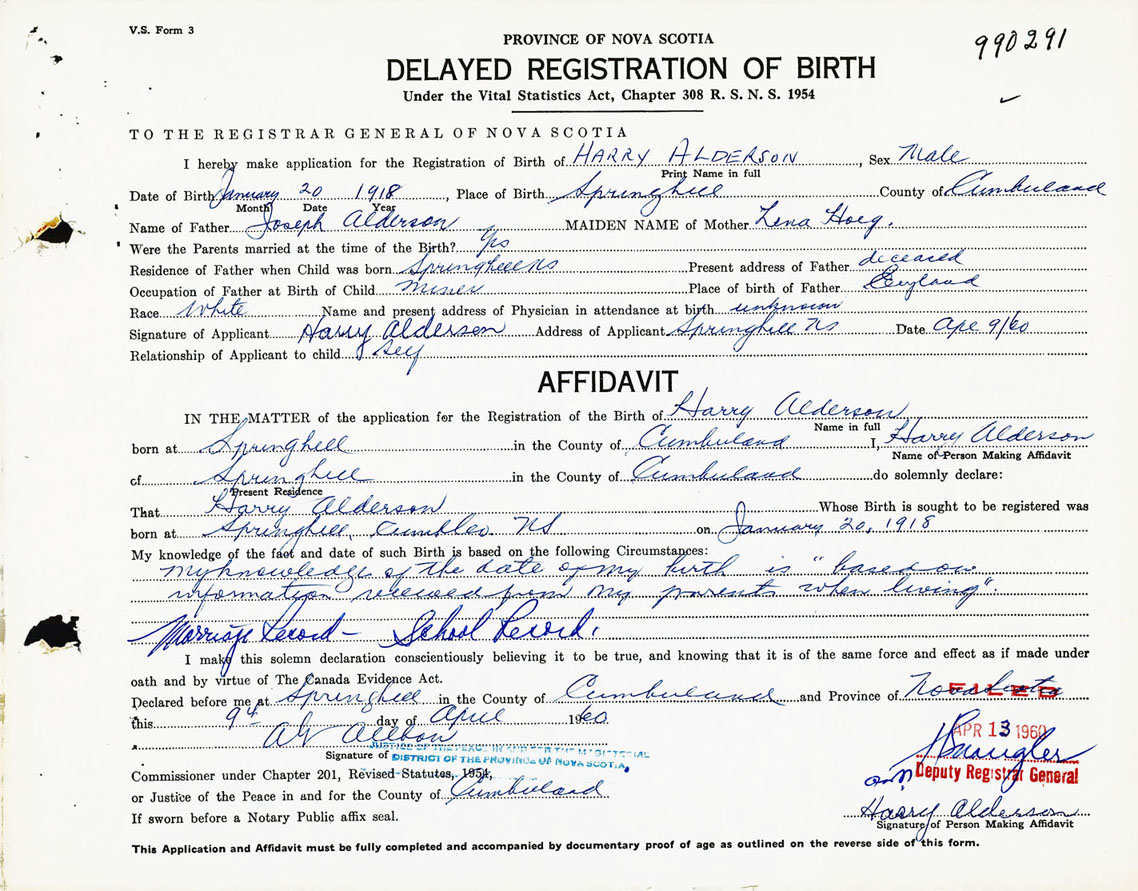 V.S. Form 3
990291
PROVINCE OF NOVA SCOTIA
DELAYED REGISTRATION OF BIRTH
Under the Vital Statistics Act, Chapter 308 R. S. N. S. 1954
TO THE REGISTRAR GENERAL OF NOVA SCOTIA
I hereby make application for the Registration of Birth of HARRY ALDERSON, Sex Male
Print Name in full
Date of Birth January 20 1918, Place of Birth Springhill County of Cumberland
Month Date Year
Name of Father Joseph Alderson MAIDEN NAME of Mother Lena Hoeg.
Were the Parents married at the time of the Birth? yes
Residence of Father when Child was born Springhill NS Present address of Father deceased
Occupation of Father at Birth of Child Miner Place of birth of Father England
Race White Name and present address of Physician in attendance at birth unknown
Signature of Applicant Harry Alderson Address of Applicant Springhill NS Date Ape 9/60
Relationship of Applicant to child Self
AFFIDAVIT
IN THE MATTER of the application for the Registration of the Birth of Harry Alderson
Name in full
born at Springhill in the County of Cumberland I, Harry Alderson
Name of Person Making Affidavit
of Springhill in the County of Cumberland do solemnly declare:
Present Residence
That Harry Alderson Whose Birth is sought to be registered was
born at Springhill, NS on January 20, 1918
My knowledge of the fact and date of such Birth is based on the following Circumstances:
My knowledge of the date of my birth is "based on
information received from my parents when living".
Marriage Record - School Record.
I make this solemn declaration conscientiously believing it to be true, and knowing that it is of the same force and effect as if made under
oath and by virtue of The Canada Evidence Act.
Declared before me at Springhill in the County of Cumberland and Province of Nova Scotia
FILED
this 9th day of April 1960
APR 13 1960
Signature of
JUSTICE OF THE PEACE IN AND FOR THE MAGISTERIAL
DISTRICT OF THE PROVINCE OF NOVA SCOTIA,
Deputy Registrar General
Commissioner under Chapter 201, Revised Statutes, 1954,
or Justice of the Peace in and for the County of Cumberland
Harry Alderson
If sworn before a Notary Public affix seal.
Signature of Person Making Affidavit
This Application and Affidavit must be fully completed and accompanied by documentary proof of age as outlined on the reverse side of this form.